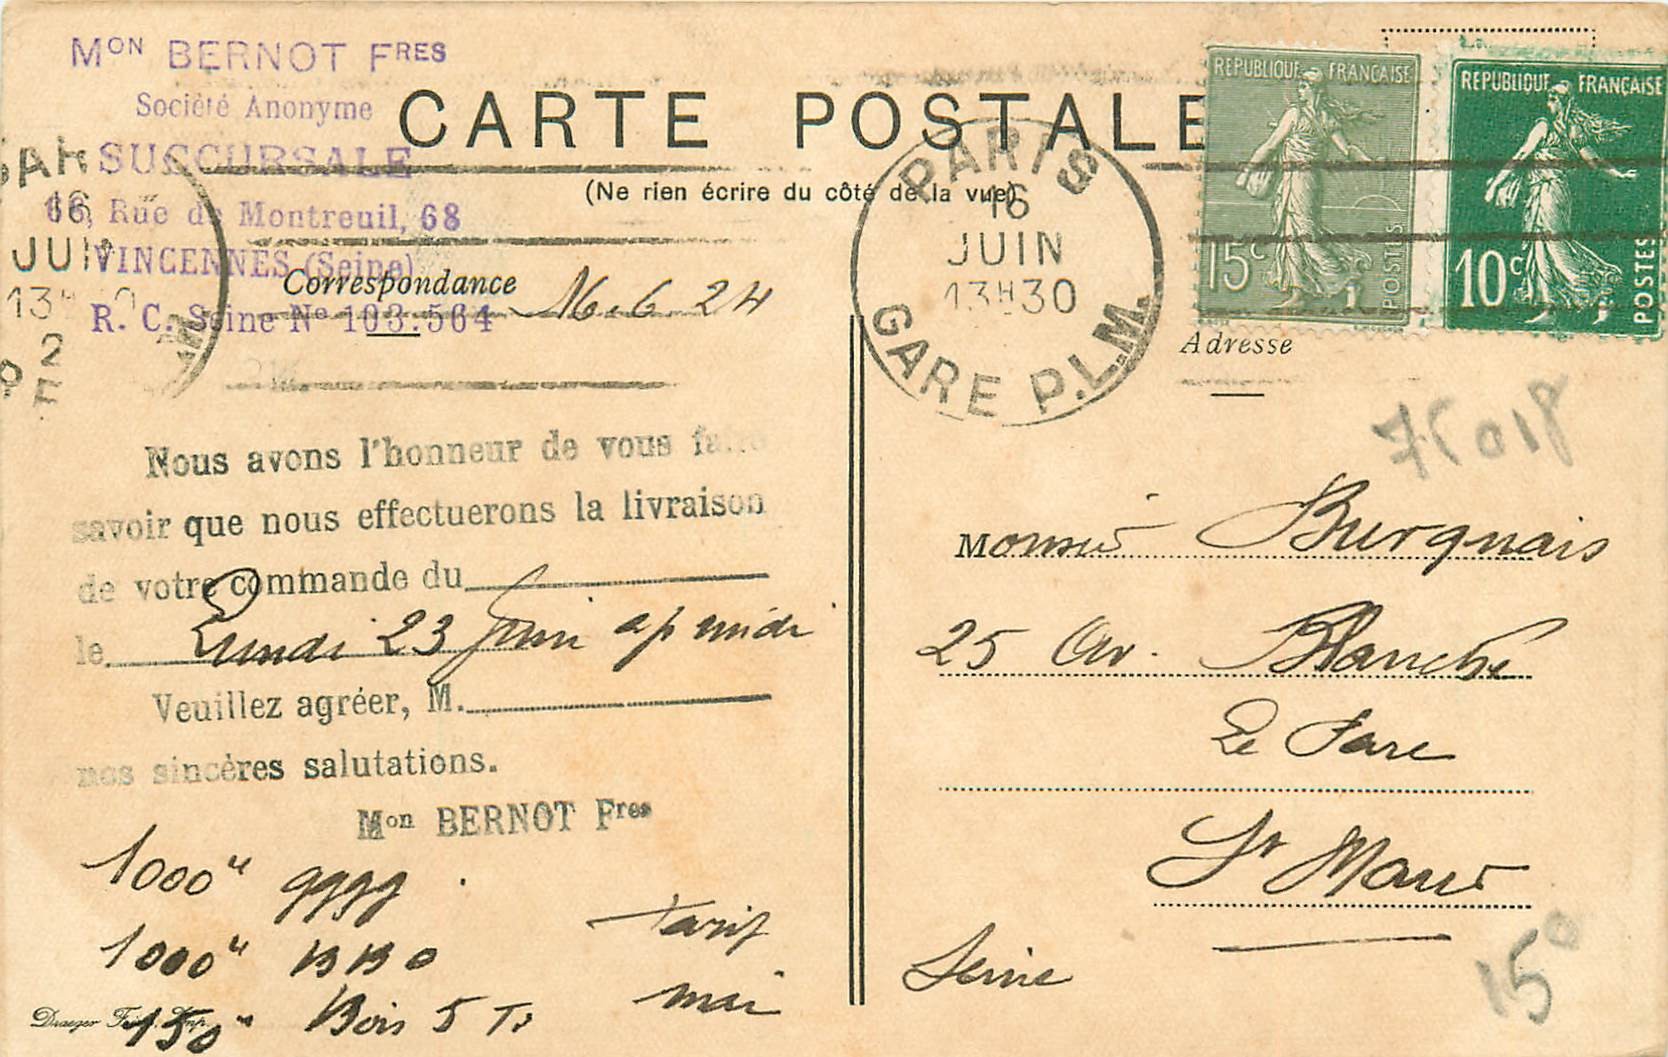 Mon BERNOT Fres
Société Anonyme
SUCCURSALE
68, Rue de Montreuil, 68
VINCENNES (Seine)
R. C. Seine No 103.564
CARTE POSTALE
(Ne rien écrire du côté de la vue)
Correspondance
16.6.24
JUIN
13
PARIS
16
JUIN
13H30
GARE P.L.M.
REPUBLIQUE FRANÇAISE
15c
POSTES
REPUBLIQUE FRANÇAISE
10c
POSTES
Adresse
Nous avons l'honneur de vous faire
savoir que nous effectuerons la livraison
de votre commande du
le Lundi 23 Juin ap midi
Veuillez agréer, M.
nos sincères salutations.
Mon BERNOT Fres
1000" gggg
1000" BBO
150" Bois 5 Ts
tarif
mai
Draeger
75018
Monsieur Burgnais
25 Av. Blanche
Le Parc
St Maur
Seine
150